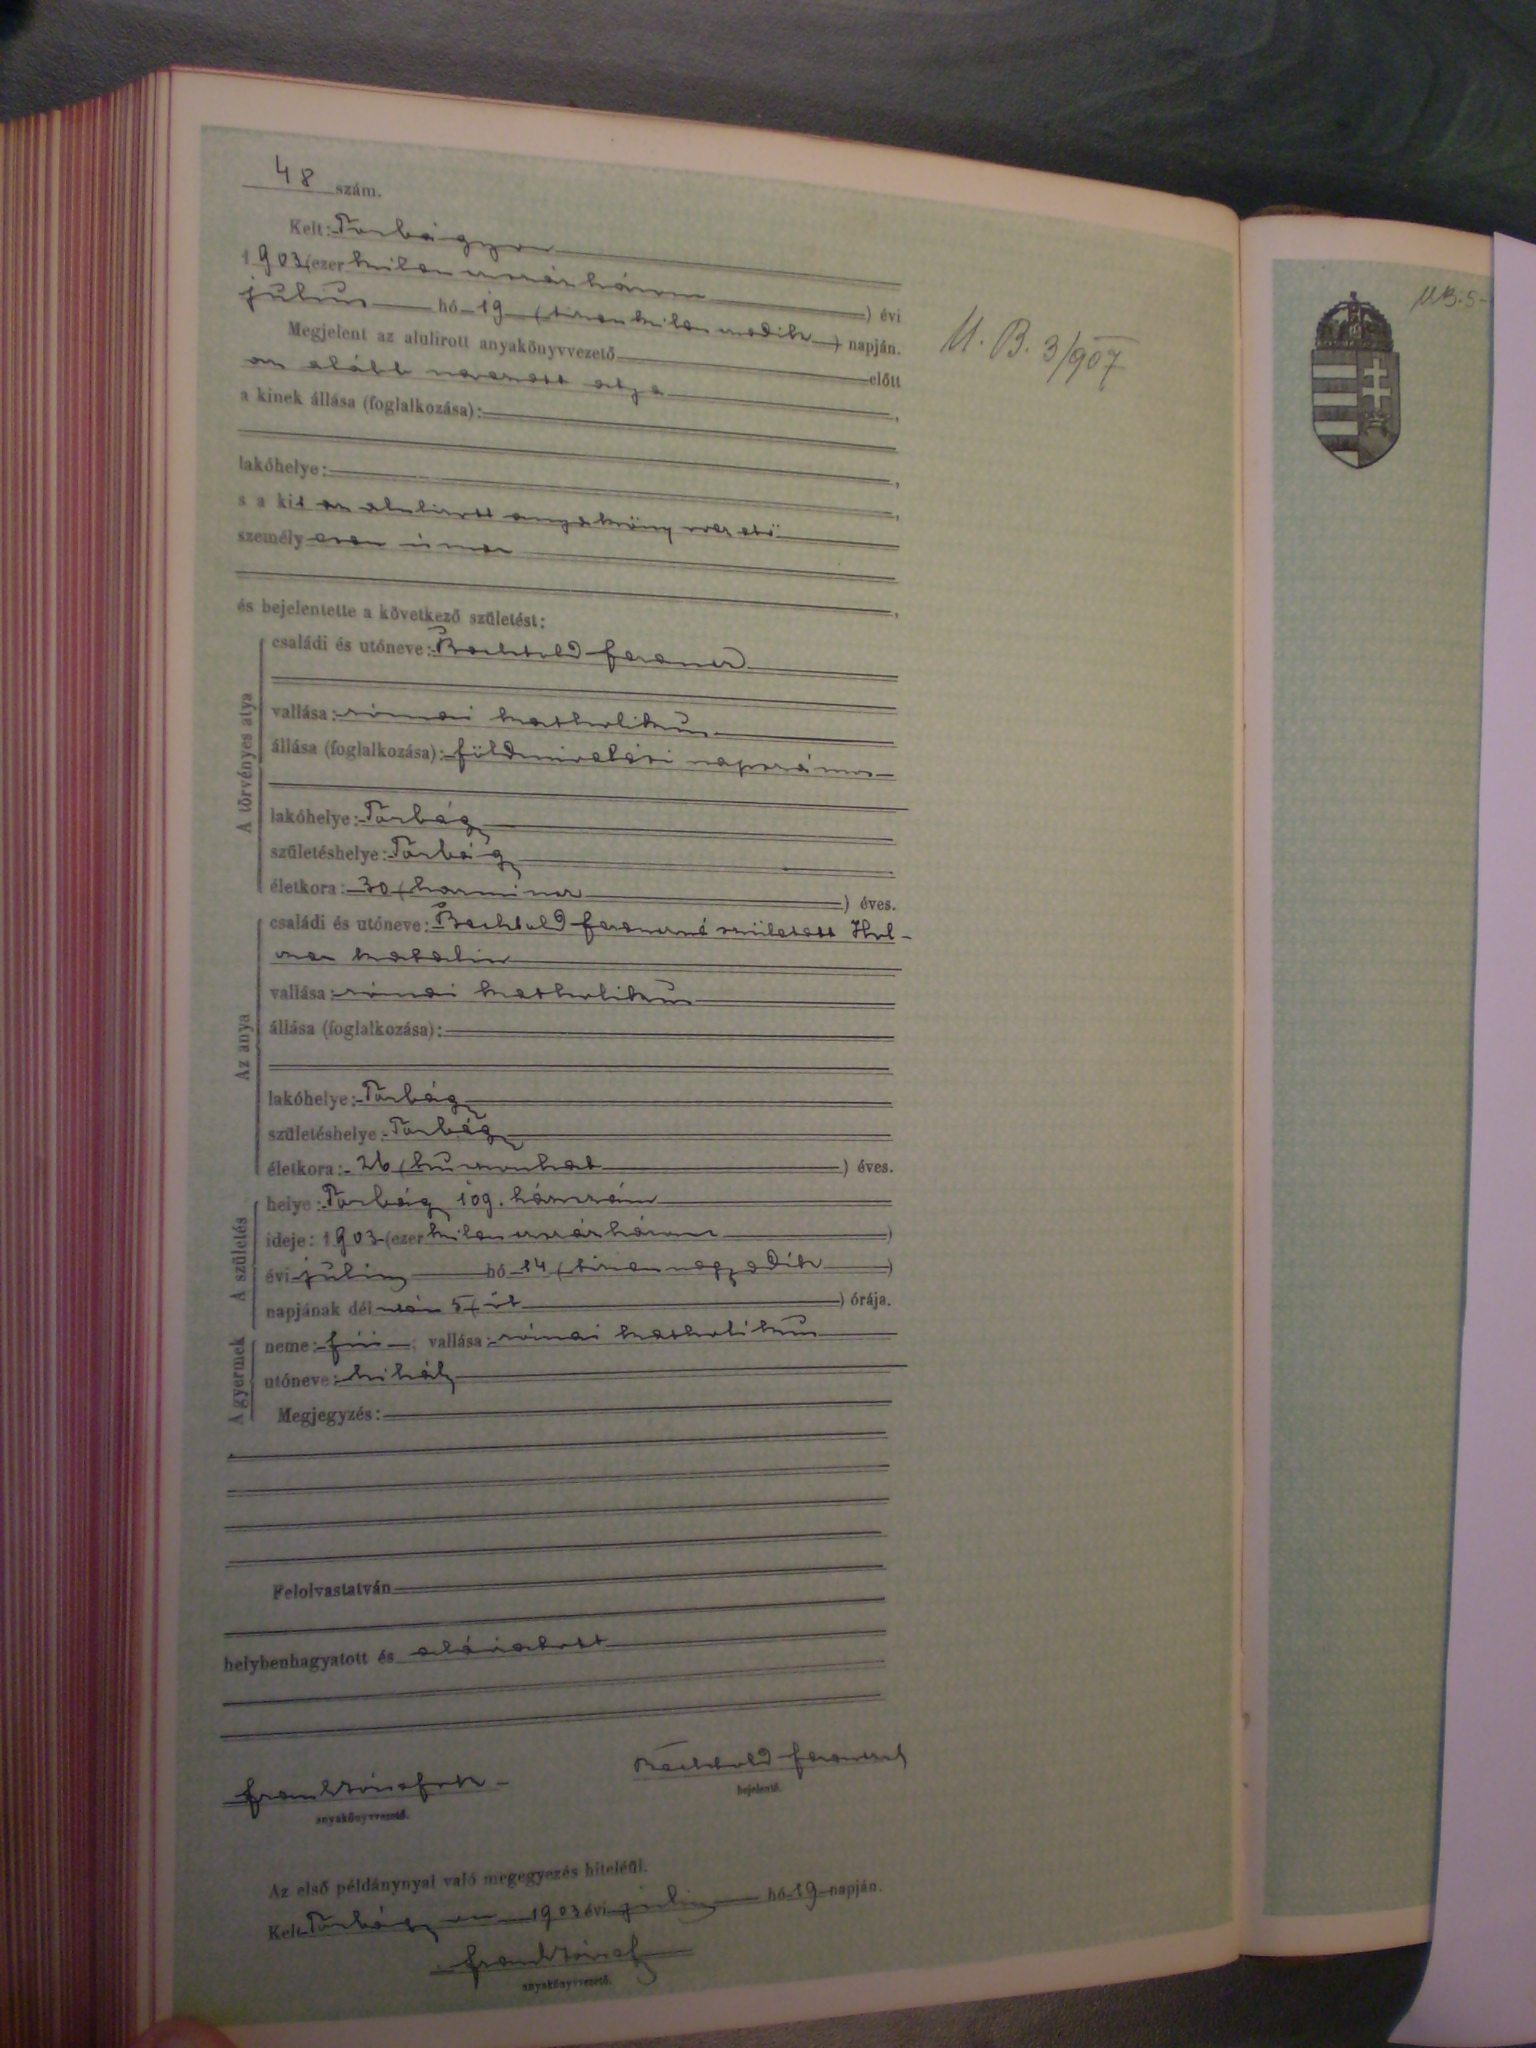 48 szám.
Kelt: Torbágyon
1903 (ezer kilenczszázhárom) évi
július hó 19 (tizenkilenczedik) napján.
Megjelent az alulirott anyakönyvvezető előtt
az alább nevezett atya
a kinek állása (foglalkozása):
lakóhelye:
s a kit az alulirott anyakönyvvezető
személyesen ismer
és bejelentette a következő születést:
A törvényes atya
családi és utóneve: Bechtold Ferencz
vallása: római katholikus
állása (foglalkozása): földmivelési napszámos
lakóhelye: Torbágy
születéshelye: Torbágy
életkora: 30 (harmincz) éves.
Az anya
családi és utóneve: Bechtold Ferenczné született Hol-
czer Katalin
vallása: római katholikus
állása (foglalkozása):
lakóhelye: Torbágy
születéshelye: Torbágy
életkora: 26 (huszonhat) éves.
A születés
helye: Torbágy 109. házszám
ideje: 1903 (ezer kilenczszázhárom)
évi július hó 14 (tizennegyedik)
napjának dél után 5 (öt) órája.
A gyermek
neme: fiú; vallása: római katholikus
utóneve: Mihály
Megjegyzés:
Felolvastatván
helybenhagyatott és aláiratott
anyakönyvvezető.
Bechtold Ferencz
bejelentő.
Az első példánynyal való megegyezés hiteléül.
Kelt Torbágyon 1903 évi július hó 19 napján.
anyakönyvvezető.
M. B. 3/907